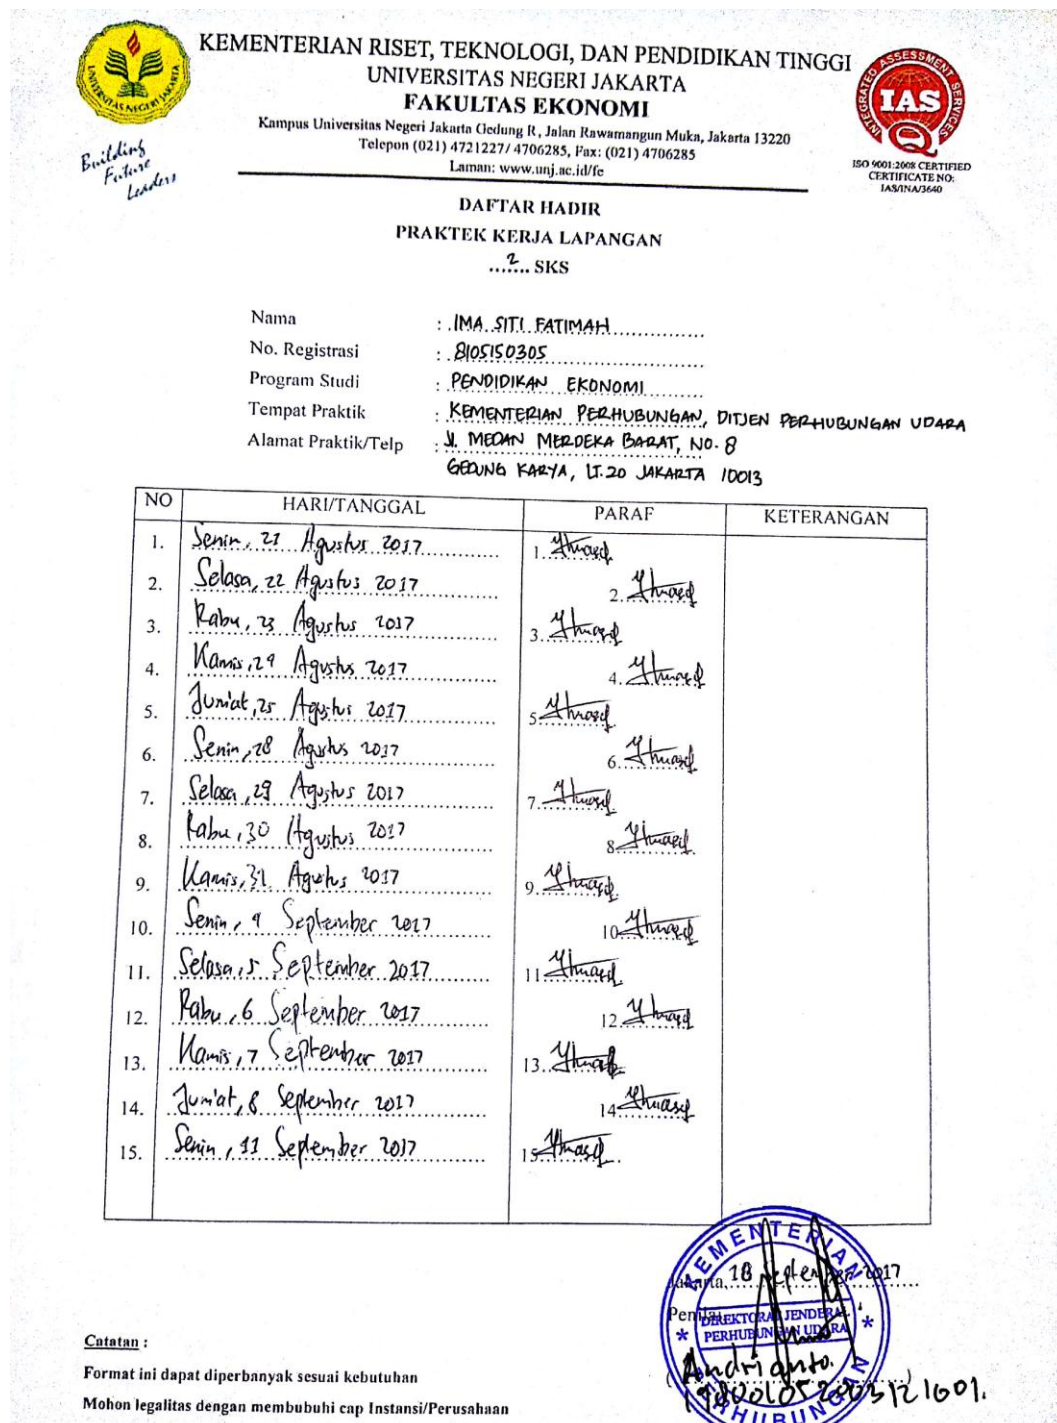 KEMENTERIAN RISET, TEKNOLOGI, DAN PENDIDIKAN TINGGI
UNIVERSITAS NEGERI JAKARTA
FAKULTAS EKONOMI
Kampus Universitas Negeri Jakarta Gedung R, Jalan Rawamangun Muka, Jakarta 13220
Telepon (021) 4721227/ 4706285, Fax: (021) 4706285
Laman: www.unj.ac.id/fe
UNIVERSITAS NEGERI JAKARTA
Building
Future
Leaders
INTEGRATED ASSESSMENT SERVICES
IAS
Q
ISO 9001:2008 CERTIFIED
CERTIFICATE NO:
IAS/INA/3640
DAFTAR HADIR
PRAKTEK KERJA LAPANGAN
...2... SKS
Nama : IMA SITI FATIMAH
No. Registrasi : 8105150305
Program Studi : PENDIDIKAN EKONOMI
Tempat Praktik : KEMENTERIAN PERHUBUNGAN, DITJEN PERHUBUNGAN UDARA
Alamat Praktik/Telp : Jl. MEDAN MERDEKA BARAT, NO. 8
GEDUNG KARYA, LT.20 JAKARTA 10013
NO HARI/TANGGAL PARAF KETERANGAN
1. Senin, 21 Agustus 2017 1.
2. Selasa, 22 Agustus 2017 2.
3. Rabu, 23 Agustus 2017 3.
4. Kamis, 24 Agustus 2017 4.
5. Jum'at, 25 Agustus 2017 5.
6. Senin, 28 Agustus 2017 6.
7. Selasa, 29 Agustus 2017 7.
8. Rabu, 30 Agustus 2017 8.
9. Kamis, 31 Agustus 2017 9.
10. Senin, 4 September 2017 10.
11. Selasa, 5 September 2017 11.
12. Rabu, 6 September 2017 12.
13. Kamis, 7 September 2017 13.
14. Jum'at, 8 September 2017 14.
15. Senin, 11 September 2017 15.
Jakarta, 18 September 2017
Penilai,
KEMENTERIAN PERHUBUNGAN
DIREKTORAT JENDERAL
PERHUBUNGAN UDARA
(Andrianto.)
Catatan :
Format ini dapat diperbanyak sesuai kebutuhan
Mohon legalitas dengan membubuhi cap Instansi/Perusahaan